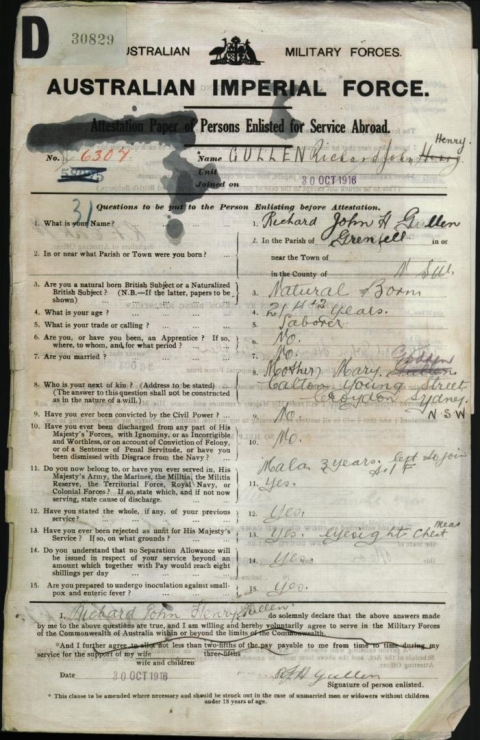 D 30829
AUSTRALIAN MILITARY FORCES.
AUSTRALIAN IMPERIAL FORCE.
Attestation Paper of Persons Enlisted for Service Abroad.
Henry.
No. 6307 Name GULLEN Richard John Henry
Unit
Joined on 30 OCT 1916
31 Questions to be put to the Person Enlisting before Attestation.
1. What is your Name? 1. Richard John H Gullen
2. In or near what Parish or Town were you born? 2. In the Parish of Grenfell in or
near the Town of
in the County of N S W.
3. Are you a natural born British Subject or a Naturalized
British Subject? (N.B.—If the latter, papers to be
shown) 3. Natural Born
4. What is your age? 4. 21 years.
5. What is your trade or calling? 5. Laborer
6. Are you, or have you been, an Apprentice? If so,
where, to whom, and for what period? 6. No.
7. Are you married? 7. No.
8. Who is your next of kin? (Address to be stated)
(The answer to this question shall not be constructed
as in the nature of a will.) 8. Mother, Mary Gullen
Young Street
Croydon Sydney.
N S W
9. Have you ever been convicted by the Civil Power? 9. No.
10. Have you ever been discharged from any part of His
Majesty's Forces, with Ignominy, or as Incorrigible
and Worthless, or on account of Conviction of Felony,
or of a Sentence of Penal Servitude, or have you
been dismissed with Disgrace from the Navy? 10. No.
11. Do you now belong to, or have you ever served in, His
Majesty's Army, the Marines, the Militia, the Militia
Reserve, the Territorial Force, Royal Navy, or
Colonial Forces? If so, state which, and if not now
serving, state cause of discharge. 11. 3 years. left to join
A I F
Yes.
12. Have you stated the whole, if any, of your previous
service? 12. Yes.
13. Have you ever been rejected as unfit for His Majesty's
Service? If so, on what grounds? 13. Yes. eyesight Chest meas
14. Do you understand that no Separation Allowance will
be issued in respect of your service beyond an
amount which together with Pay would reach eight
shillings per day 14. Yes.
15. Are you prepared to undergo inoculation against small-
pox and enteric fever? 15. Yes.
I, Richard John Henry Gullen do solemnly declare that the above answers made
by me to the above questions are true, and I am willing and hereby voluntarily agree to serve in the Military Forces
of the Commonwealth of Australia within or beyond the limits of the Commonwealth.
*And I further agree to allot not less than two-fifths of the pay payable to me from time to time during my
service for the support of my wife three-fifths
wife and children
Date 30 OCT 1916 Gullen
Signature of person enlisted.
* This clause to be amended where necessary and should be struck out in the case of unmarried men or widowers without children
under 18 years of age.